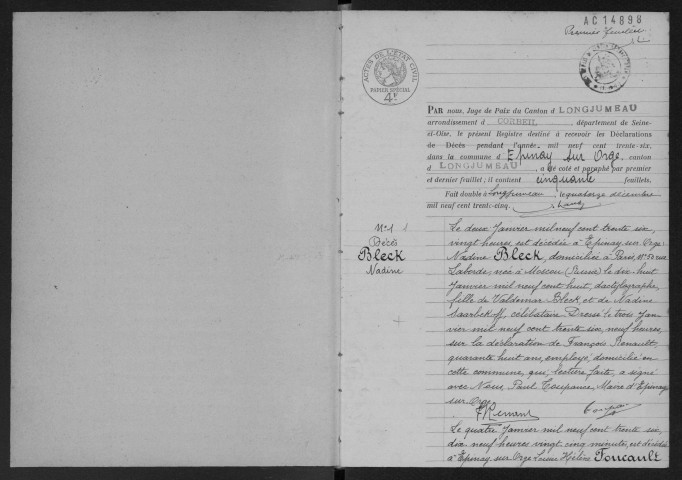 AC 14898
Premier feuillet
ACTES DE L'ETAT CIVIL
PAPIER SPECIAL
4F
PAR nous, Juge de Paix du Canton d LONGJUMEAU
arrondissement d CORBEIL, département de Seine-
et-Oise, le présent Registre destiné à recevoir les Déclarations
de Décès pendant l'année mil neuf cent trente-six,
dans la commune d'Epinay sur Orge, canton
d LONGJUMEAU, a été coté et paraphé par premier
et dernier feuillet; il contient cinquante feuillets.
Fait double à Longjumeau, le quatorze décembre
mil neuf cent trente-cinq.
N°1 1
Décès
Bleck
Nadine
Le deux Janvier mil neuf cent trente six,
vingt heures, est décédée à Epinay sur Orge
Nadine Bleck, domiciliée à Paris, N° 50 rue
Laborde; née à Moscou (Russie) le dix huit
Janvier mil neuf cent huit, dactylographe,
fille de Valdemar Bleck et de Nadine
Saarbekoff, célibataire. Dressé le trois Jan
vier mil neuf cent trente six, neuf heures,
sur la déclaration de François Renault,
quarante huit ans, employé, domicilié en
cette commune, qui, lecture faite, a signé
avec Nous, Paul Coupance, Maire d'Epinay
sur Orge
Le quatre Janvier mil neuf cent trente six,
dix neuf heures vingt cinq minutes, est décédée
à Epinay sur Orge Louise Hélène Foucault